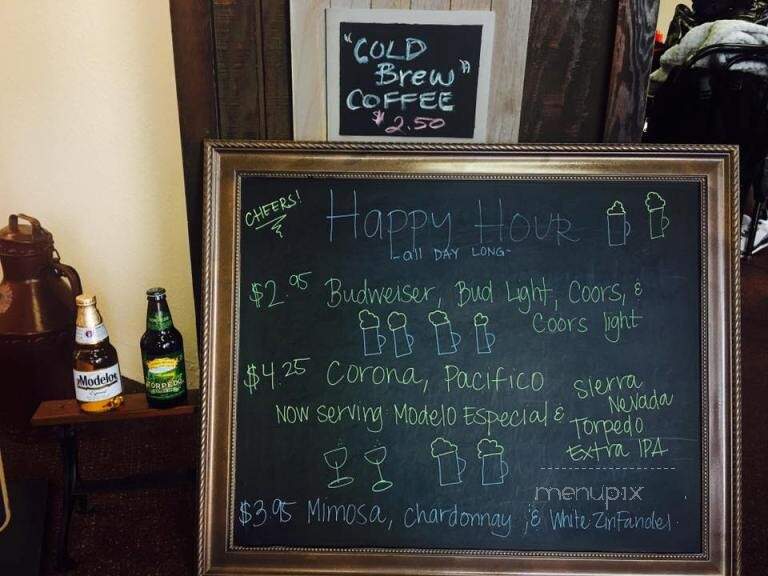 "COLD
Brew"
COFFEE
$2.50
CHEERS!
Happy Hour
-all DAY LONG-
$2.95 Budweiser, Bud Light, Coors, &
Coors light
$4.25 Corona, Pacifico
Now serving: Modelo Especial &
Sierra
Nevada
Torpedo
Extra IPA
$3.95 Mimosa, Chardonnay, & White Zinfandel.
Modelo
TORPEDO
menupix